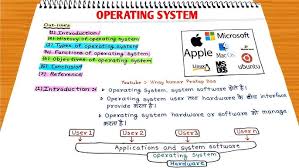 OPERATING SYSTEM
Out-lines
(1) Introduction
(2) History of operating system
(3) Types of operating system
(4) Functions of operating system
(5) Objectives of operating system
(6) Conclusion
(7) Reference
Microsoft
Apple
Mac
Linux
MS DOS
ubuntu
Youtube : Vinay kumar
(1) Introduction :
Operating System, system software होता है।
Operating system user तथा hardware के बीच interface
provide करता है।
Operating system hardware or software को manage
करता है।
User 1
User 2
User 3
User 4
Applications and system software
operating system
Hardware